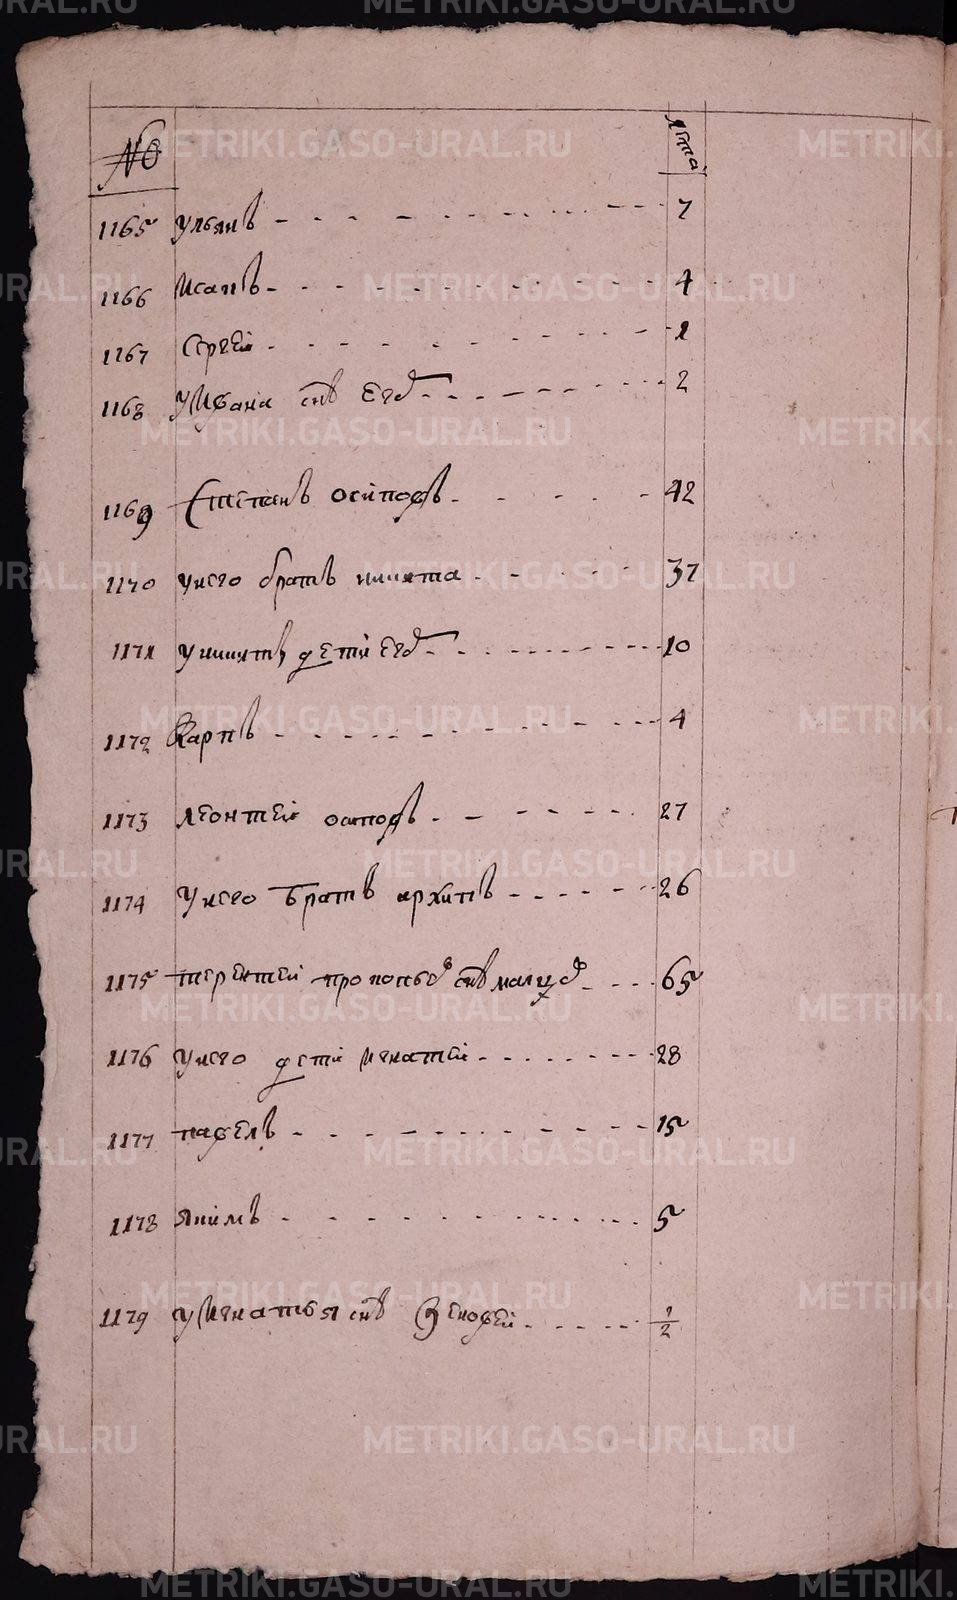 METRIKI.GASO-URAL.RU
№ лѣта
1165 ульянъ 7
1166 исапъ 4
1167 Сергей 1
1168 у Ивана снъ Егоръ 2
1169 Степанъ осиповъ 42
1170 у него братъ никита 37
1171 у никиты дети 10
1172 Карпъ 4
1173 леонтей осиповъ 27
1174 у него братъ архипъ 26
1175 терентей снъ 65
1176 у него дети игнатей 28
1177 павелъ 15
1178 якимъ 5
1179 у Игнатья снъ 1/2